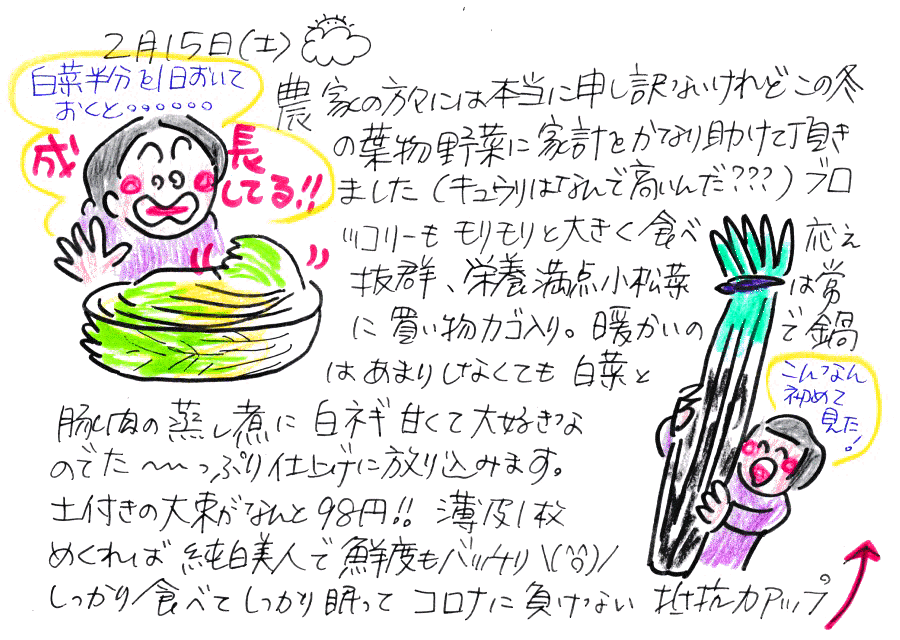 2月15日(土)
白菜半分を1日おいて
おくと。。。。。。。
成長
してる!!
農家の方々には本当に申し訳ないけれどこの冬
の葉物野菜に家計をかなり助けて頂き
ました(キュウリはなんで高いんだ???)ブロ
ッコリーもモリモリと大きく食べ応え
抜群、栄養満点小松菜は常
に買い物カゴ入り。暖かいので鍋
はあまりしなくても白菜と
豚肉の蒸し煮に白ネギ甘くて大好きな
のでた〜〜っぷり仕上げに放り込みます。
土付きの大束がなんと98円!!薄皮1枚
めくれば純白美人で鮮度もバッチリ\(^o^)/
しっかり食べてしっかり眠ってコロナに負けない抵抗力アップ
こんなん
初めて
見た!